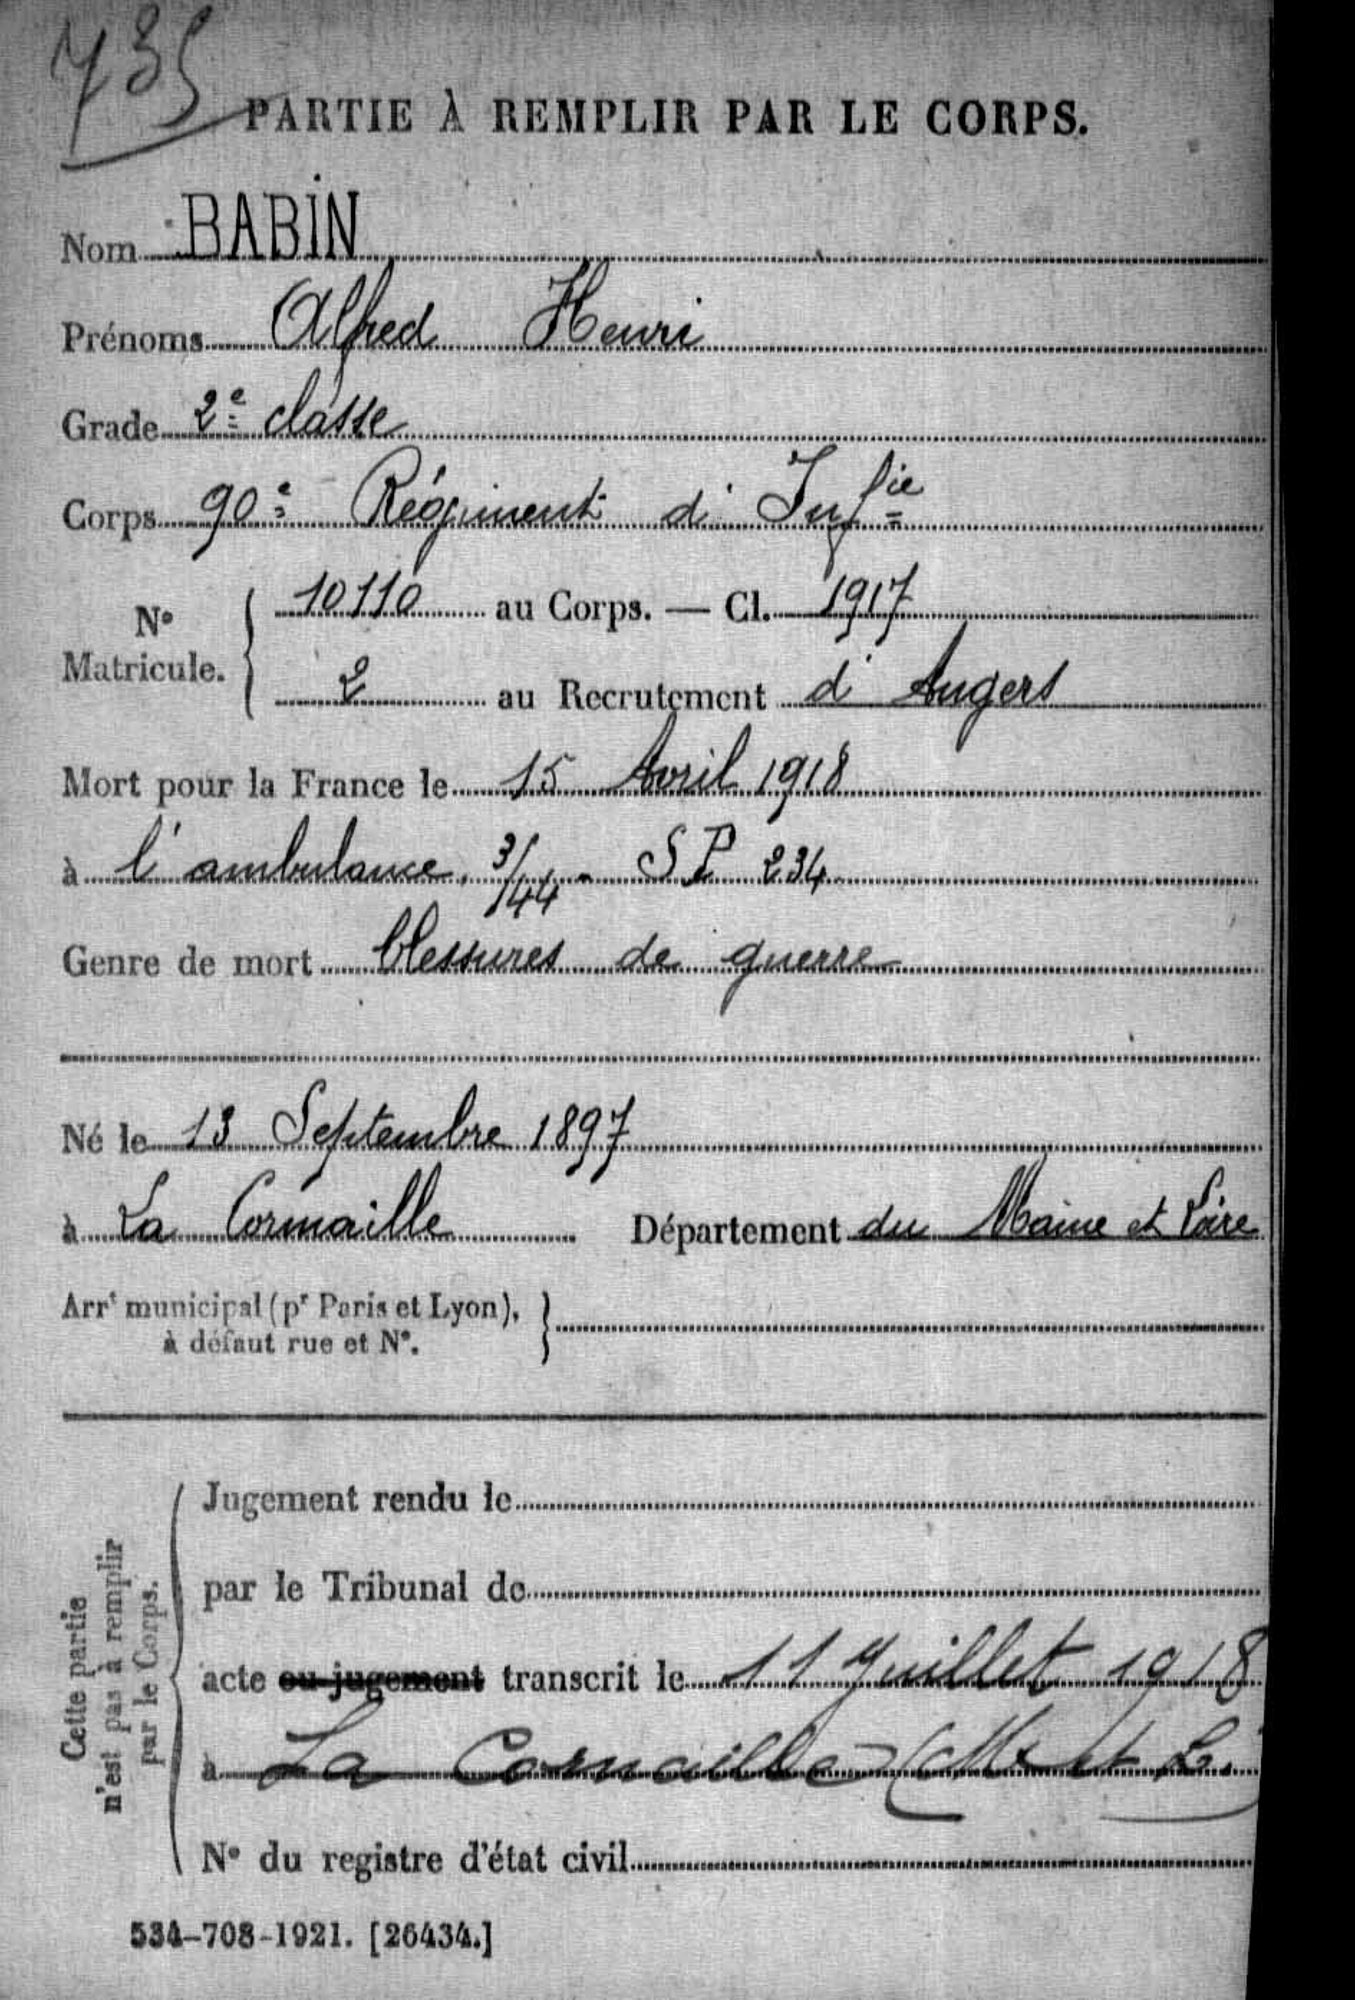 735
PARTIE À REMPLIR PAR LE CORPS.
Nom BABIN
Prénoms Alfred Henri
Grade 2e classe
Corps 90e Régiment d'Infie
No Matricule. { 10110 au Corps. — Cl. 1917
2 au Recrutement d'Angers
Mort pour la France le 15 Avril 1918
à l'ambulance. 3/44 - SP 234
Genre de mort blessures de guerre
Né le 13 Septembre 1897
à La Cormaille Département du Maine et Loire
Arrt municipal (pr Paris et Lyon), }
à défaut rue et No.
Cette partie
n'est pas à remplir
par le Corps.
Jugement rendu le
par le Tribunal de
acte ou jugement transcrit le 11 Juillet 1918
à La Cornaille (M et L.
No du registre d'état civil
534-708-1921. [26434.]